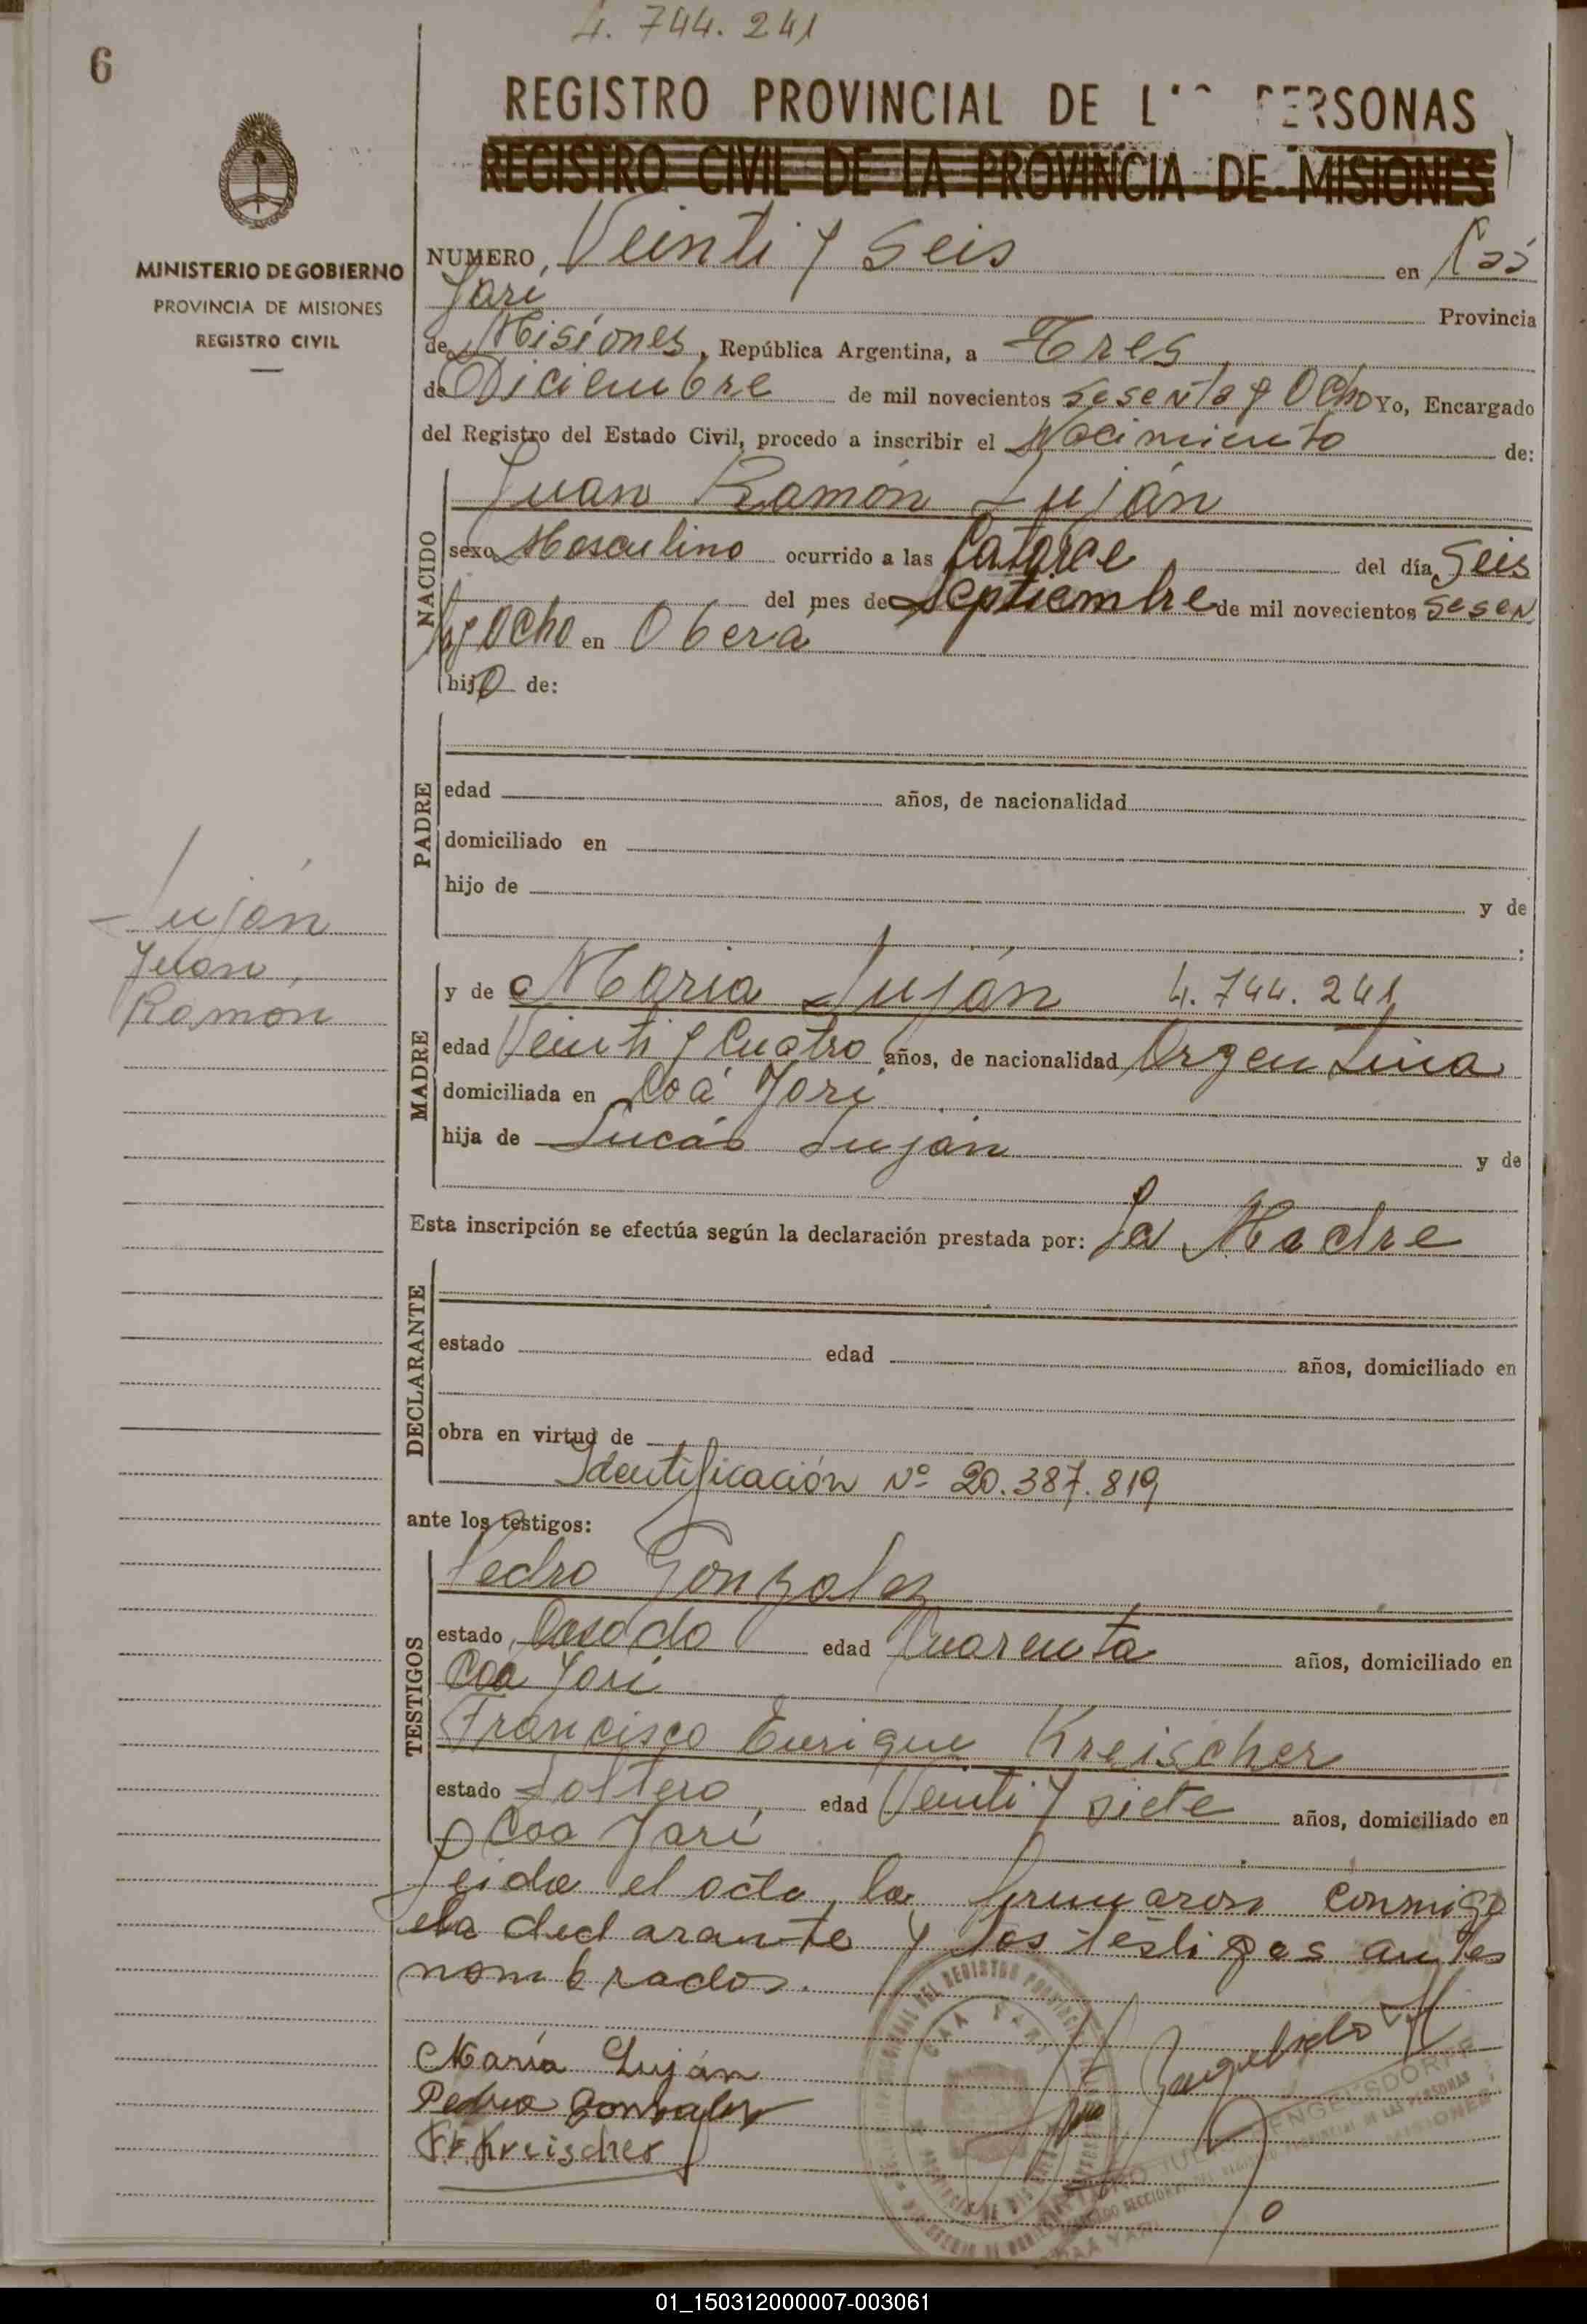 4.744.241
6
REGISTRO PROVINCIAL DE L PERSONAS
REGISTRO CIVIL DE LA PROVINCIA DE MISIONES
MINISTERIO DE GOBIERNO
PROVINCIA DE MISIONES
REGISTRO CIVIL
NUMERO, Veinti y Seis en Caá
Yarí Provincia
de Misiones, República Argentina, a Tres
de Diciembre de mil novecientos Sesenta y Ocho Yo, Encargado
del Registro del Estado Civil, procedo a inscribir el Nacimiento de:
NACIDO
Juan Ramón Luján
sexo Masculino ocurrido a las Catorce del día Seis
del mes de Septiembre de mil novecientos Sesen
ta y Ocho en Oberá
hijo de:
PADRE
edad años, de nacionalidad
domiciliado en
hijo de y de
Luján
Juan
Ramón
MADRE
y de María Luján 4.744.241
edad Veinti y Cuatro años, de nacionalidad Argentina
domiciliada en Caá Yarí
hija de Lucás Luján y de
Esta inscripción se efectúa según la declaración prestada por: La Madre
DECLARANTE
estado edad años, domiciliado en
obra en virtud de
Identificación Nº 20.387.819
ante los testigos:
TESTIGOS
Pedro Gonzalez
estado Casado edad Cuarenta años, domiciliado en
Caa Yarí
Francisco Enrique Kreischer
estado Soltero, edad Veinti y siete años, domiciliado en
Caa Yarí
Leida el acta, la firmaron conmigo
la declarante y los testigos antes
nombrados.
María Luján
Pedro Gonzalez
Fr. Kreischer
ENGELSDORFF
MISIONES
CAA YARI
01_150312000007-003061